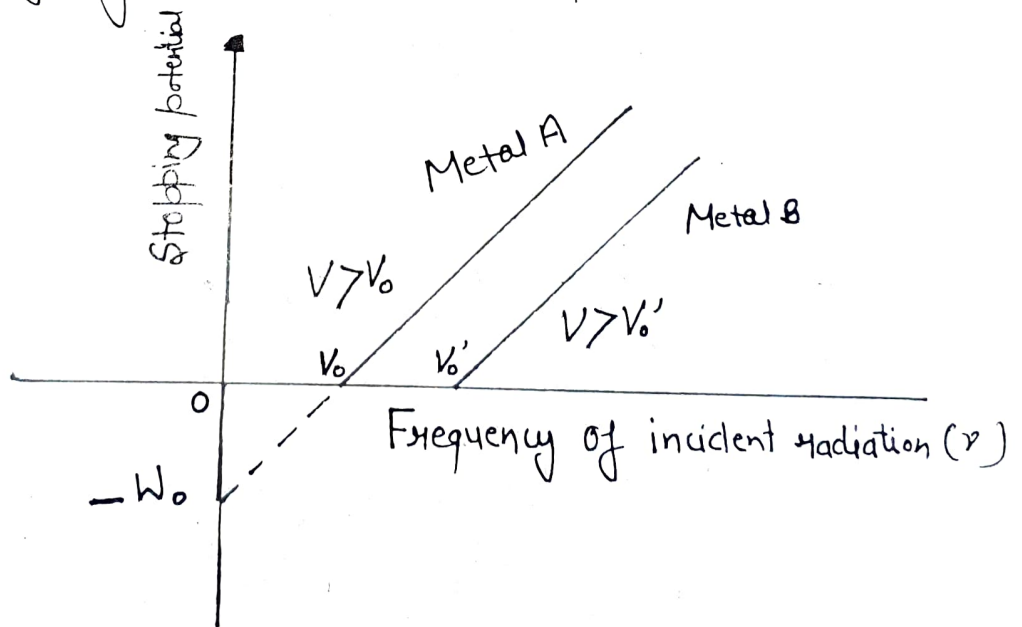 Stopping potential
Metal A
Metal B
V>V₀
V>V₀'
V₀
V₀'
O
Frequency of incident radiation (ν)
-W₀